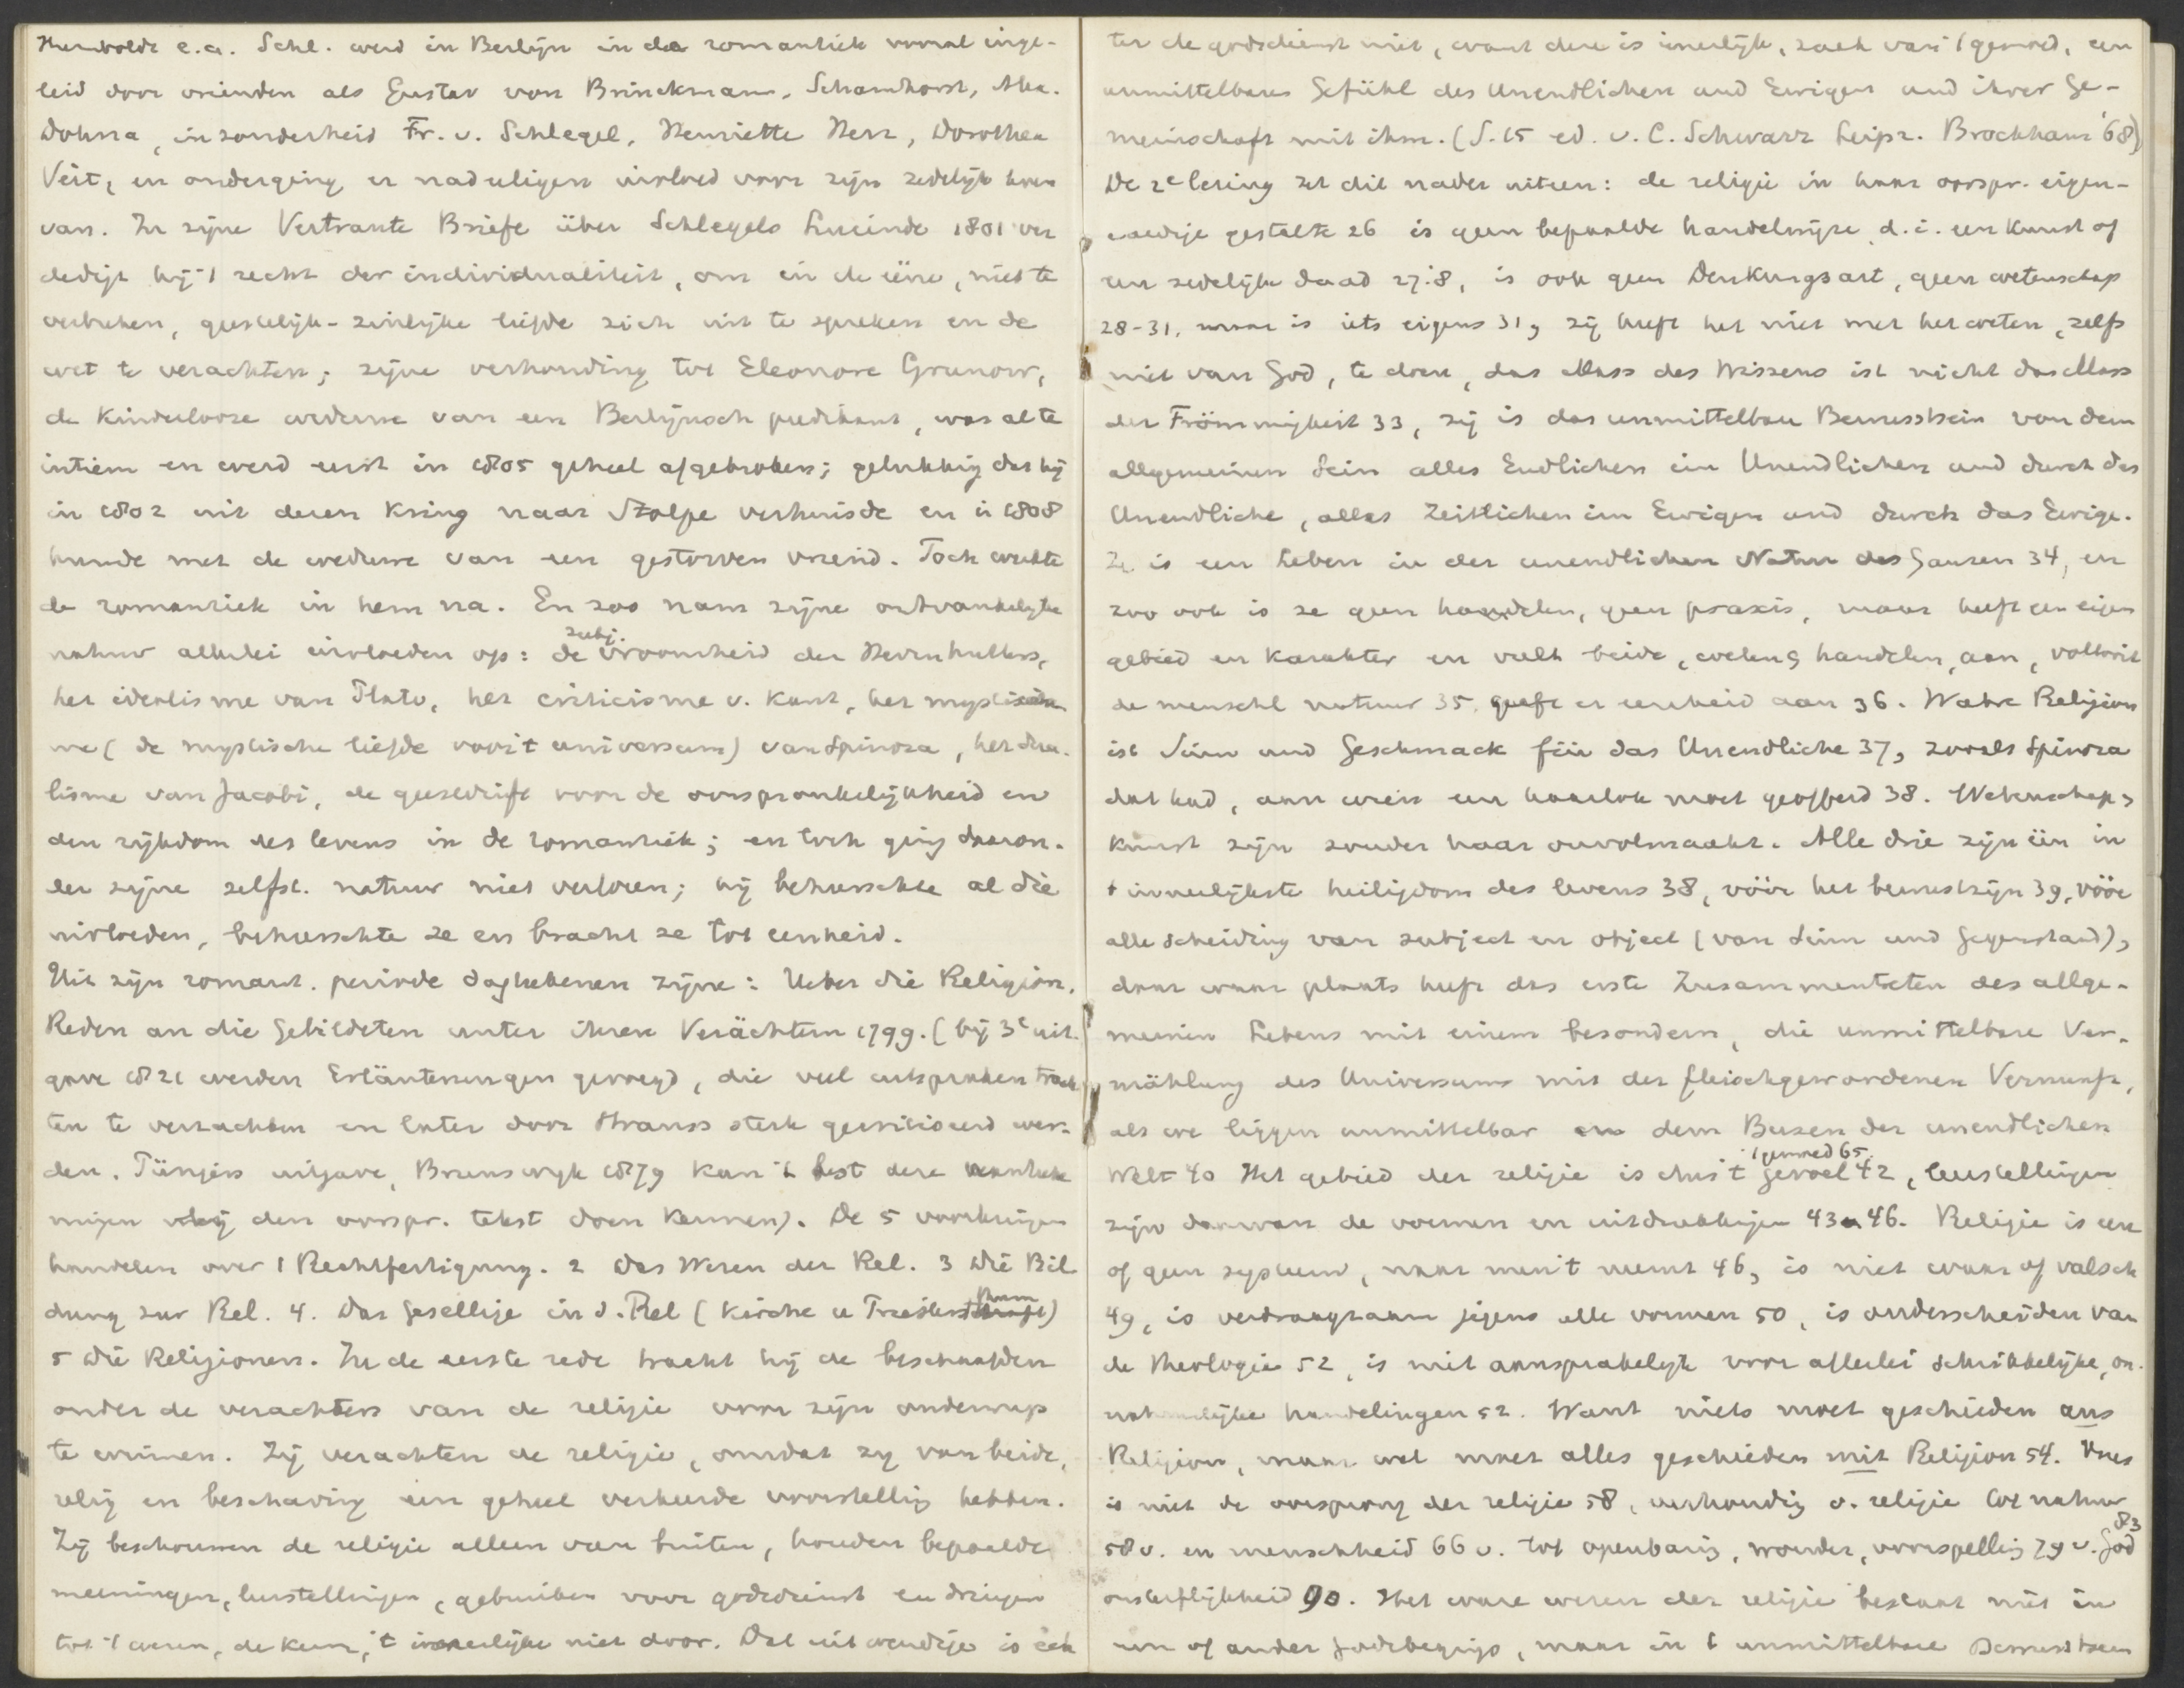 Humboldt e.a. Schl. werd in Berlijn in de romantiek vooral inge-
leid door vrienden als Gustav von Brinckmann, Scharnhorst, Alex.
Dohna, inzonderheid Fr. v. Schlegel, Henriette Herz, Dorothea
Veit, en onderging er nadeeligen invloed voor zijn zedelijk leven
van. In zijne Vertraute Briefe über Schlegels Lucinde 1801 ver
dedigt hij 't recht der individualiteit, om in de eene, niet te
verbreken, geestelijk-zinlijke liefde zich uit te spreken en de
wet te verachten; zijne verhouding tot Eleonore Grunow,
de kinderlooze vrouw van een Berlijnsch predikant, was al te
intiem en werd eerst in 1805 geheel afgebroken; gelukkig dat hij
in 1802 uit dezen kring naar Stolpe verhuisde en in 1808
huwde met de weduwe van een gestorven vriend. Toch werkte
de romantiek in hem na. En zoo nam zijne ontvankelijke
natuur allerlei invloeden op: de subj. vroomheid der Hernhutters,
het idealisme van Plato, het criticisme v. Kant, het mysticis
me (de mystische liefde voor 't universum) van Spinoza, het dua-
lisme van Jacobi, de geestdrift voor de oorspronkelijkheid en
den rijkdom des levens in de romantiek; en toch ging daaron-
der zijne zelfst. natuur niet verloren; hij beheerschte al die
invloeden, beheerschte ze en bracht ze tot eenheid.
Uit zijn romant. periode dagteekenen zijne: Ueber die Religion,
Reden an die Gebildeten unter ihren Verächtern 1799. (bij 3e uit-
gave 1821 werden Erläuterungen gevoegd, die veel uitspraken trach
ten te verzachten en later door Strauss sterk gecritiseerd wer-
den. Pünjers uitgave, Brunswijk 1879 kan 't best deze
mijen den oorspr. tekst doen kennen). De 5
handelen over 1 Rechtfertigung. 2 Das Wesen der Rel. 3 Die Bil
dung zur Rel. 4. Das Gesellige in d. Rel (Kirche u Priesterthum)
5 Die Religionen. In de eerste rede tracht hij de beschaafden
onder de verachters van de religie voor zijn onderwerp
te winnen. Zij verachten de religie, omdat zij van beide,
relig en beschaving een geheel verkeerde voorstelling hebben.
Zij beschouwen de religie alleen van buiten, houden bepaalde
meeningen, leerstellingen, gebruiken voor godsdienst en dringen
tot 't wezen, de kern, 't innerlijke niet door. Dat uitwendige is ech
ter de godsdienst niet, want deze is innerlijk, zaak van 't gemoed, een
unmittelbares Gefühl des Unendlichen und Ewigen und ihrer Ge-
meinschaft mit ihm. (S. 15 ed. v. C. Schwarz Leipz. Brockhaus '68)
De 2e lezing zet dit nader uiteen: de religie in haar oorspr. eigen-
aardige gestalte 26 is geen bepaalde handelwijze, d.i. een kunst of
een zedelijke daad 27.8, is ook geen Denkungsart, geen wetenschap
28-31, maar is iets eigens 31, zij heeft het niet met het weten, zelfs
niet van God, te doen, das Mass des Wissens ist nicht das Mass
der Frömmigkeit 33, zij is das unmittelbare Bewusstsein von dem
allgemeinen Sein alles Endlichen im Unendlichen und durch das
Unendliche, alles Zeitlichen im Ewigen und durch das Ewige.
Ze is een Leben in der unendlichen Natur des Ganzen 34, en
zoo ook is ze geen handelen, geen praxis, maar heeft een eigen
gebied en karakter en vult beide, weten & handelen, aan, voltooit
de menschl natuur 35, geeft er eenheid aan 36. Wahre Religion
ist Sinn und Geschmack für das Unendliche 37, zooals Spinoza
dat had, aan wien een haarlok moet geofferd 38. Wetenschap,
kunst zijn zonder haar onvolmaakt. Alle drie zijn één in
't innerlijkste heiligdom des levens 38, vóór het bewustzijn 39, vóór
alle scheiding van subject en object (van Sinn und Gegenstand),
daar waar plaats heeft das erste Zusammentreten des allge-
meinen Lebens mit einem besondern, die unmittelbare Ver-
mählung des Universums mit der fleischgewordenen Vernunft,
als we liggen unmittelbar an dem Busen der unendlichen
Welt 40 Het gebied der religie is dus 't gevoel 42, 't gemoed 65, leerstellingen
zijn daarvan de vormen en uitdrukkingen 43 46. Religie is een
of geen systeem, naar men 't neemt 46, is niet waar of valsch
49, is verdraagzaam jegens alle vormen 50, is onderscheiden van
de theologie 52, is niet aansprakelijk voor allerlei schrikkelijke, on-
natuurlijke handelingen 52. Want niets moet geschieden aus
Religion, maar wel moet alles geschieden mit Religion 54. Vrees
is niet de oorsprong der religie 58, verhouding v. religie tot natuur
58 v. en menschheid 66 v. tot openbaring, wonder, voorspelling 79 v. God 83
onsterflijkheid 90. Het ware wezen der religie bestaat niet in
een of ander Godsbegrip, maar in 't unmittelbare Bewusstsein